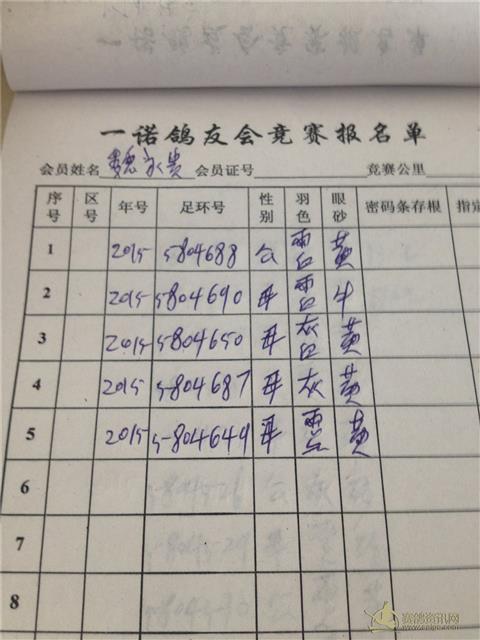 一诺鸽友会竞赛报名单
会员姓名 魏永贵 会员证号 竞赛公里
序号 区号 年号 足环号 性别 羽色 眼砂 密码条存根 指定
1 2015 5804688 公 雨白 黄
2 2015 5804690 母 雨白 牛
3 2015 5804650 母 灰白 黄
4 2015 5804687 母 灰 黄
5 2015 5804649 母 雨点 黄
6
7
8
赛鸽资讯网